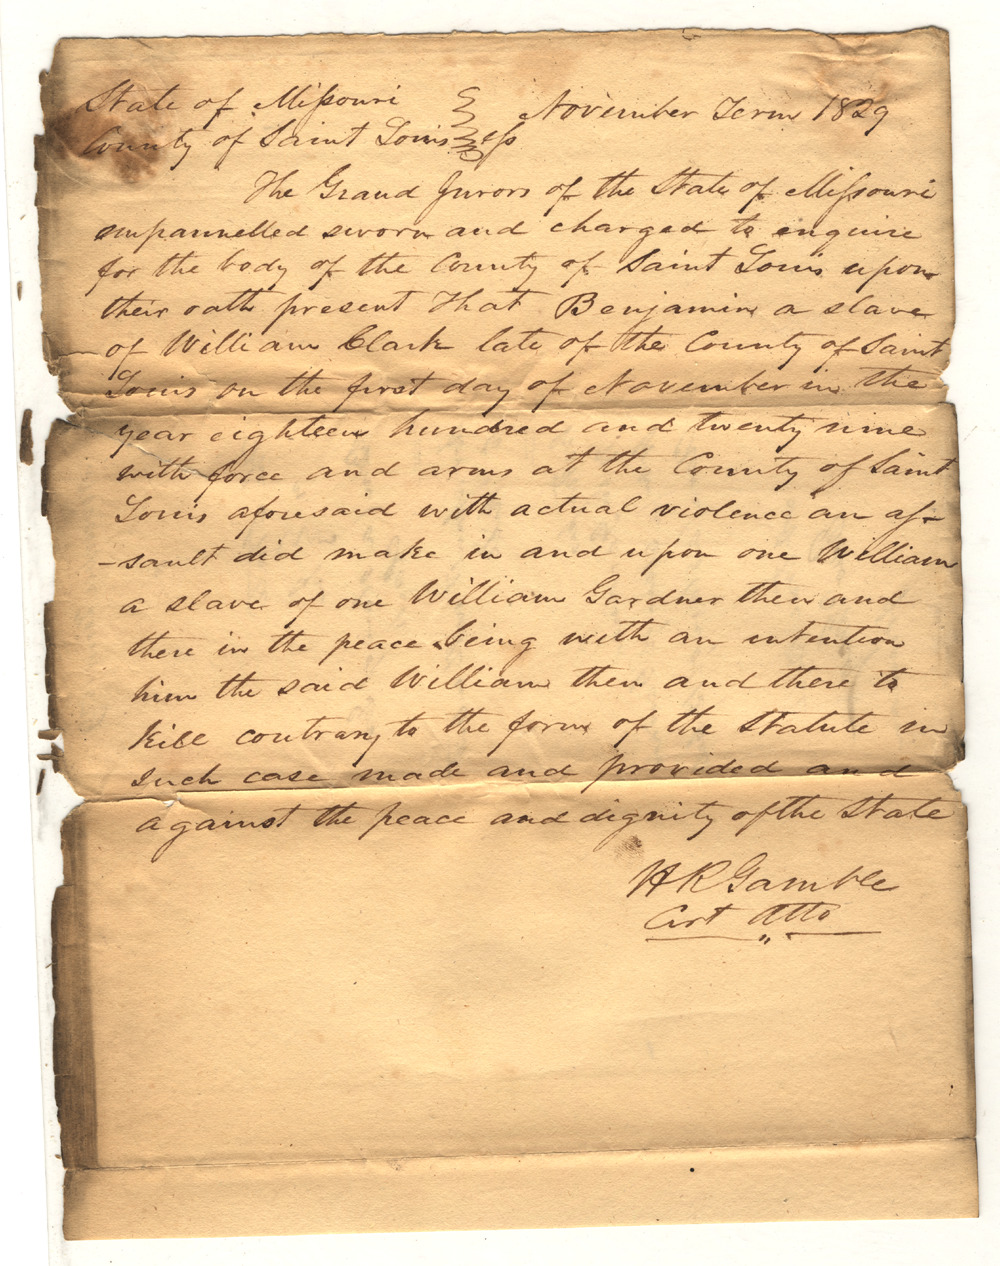 State of Missouri
County of Saint Louis ss November Term 1829
The Grand Jurors of the State of Missouri
empannelled sworn and charged to enquire
for the body of the County of Saint Louis upon
their oath present That Benjamin a slave
of William Clark late of the County of Saint
Louis on the first day of November in the
year eighteen hundred and twenty nine
with force and arms at the County of Saint
Louis aforesaid with actual violence an as-
-sault did make in and upon one William
a slave of one William Gardner then and
there in the peace being with an intention
him the said William then and there to
kill contrary to the form of the Statute in
such case made and provided and
against the peace and dignity of the State
H R Gamble
Cirt Atto